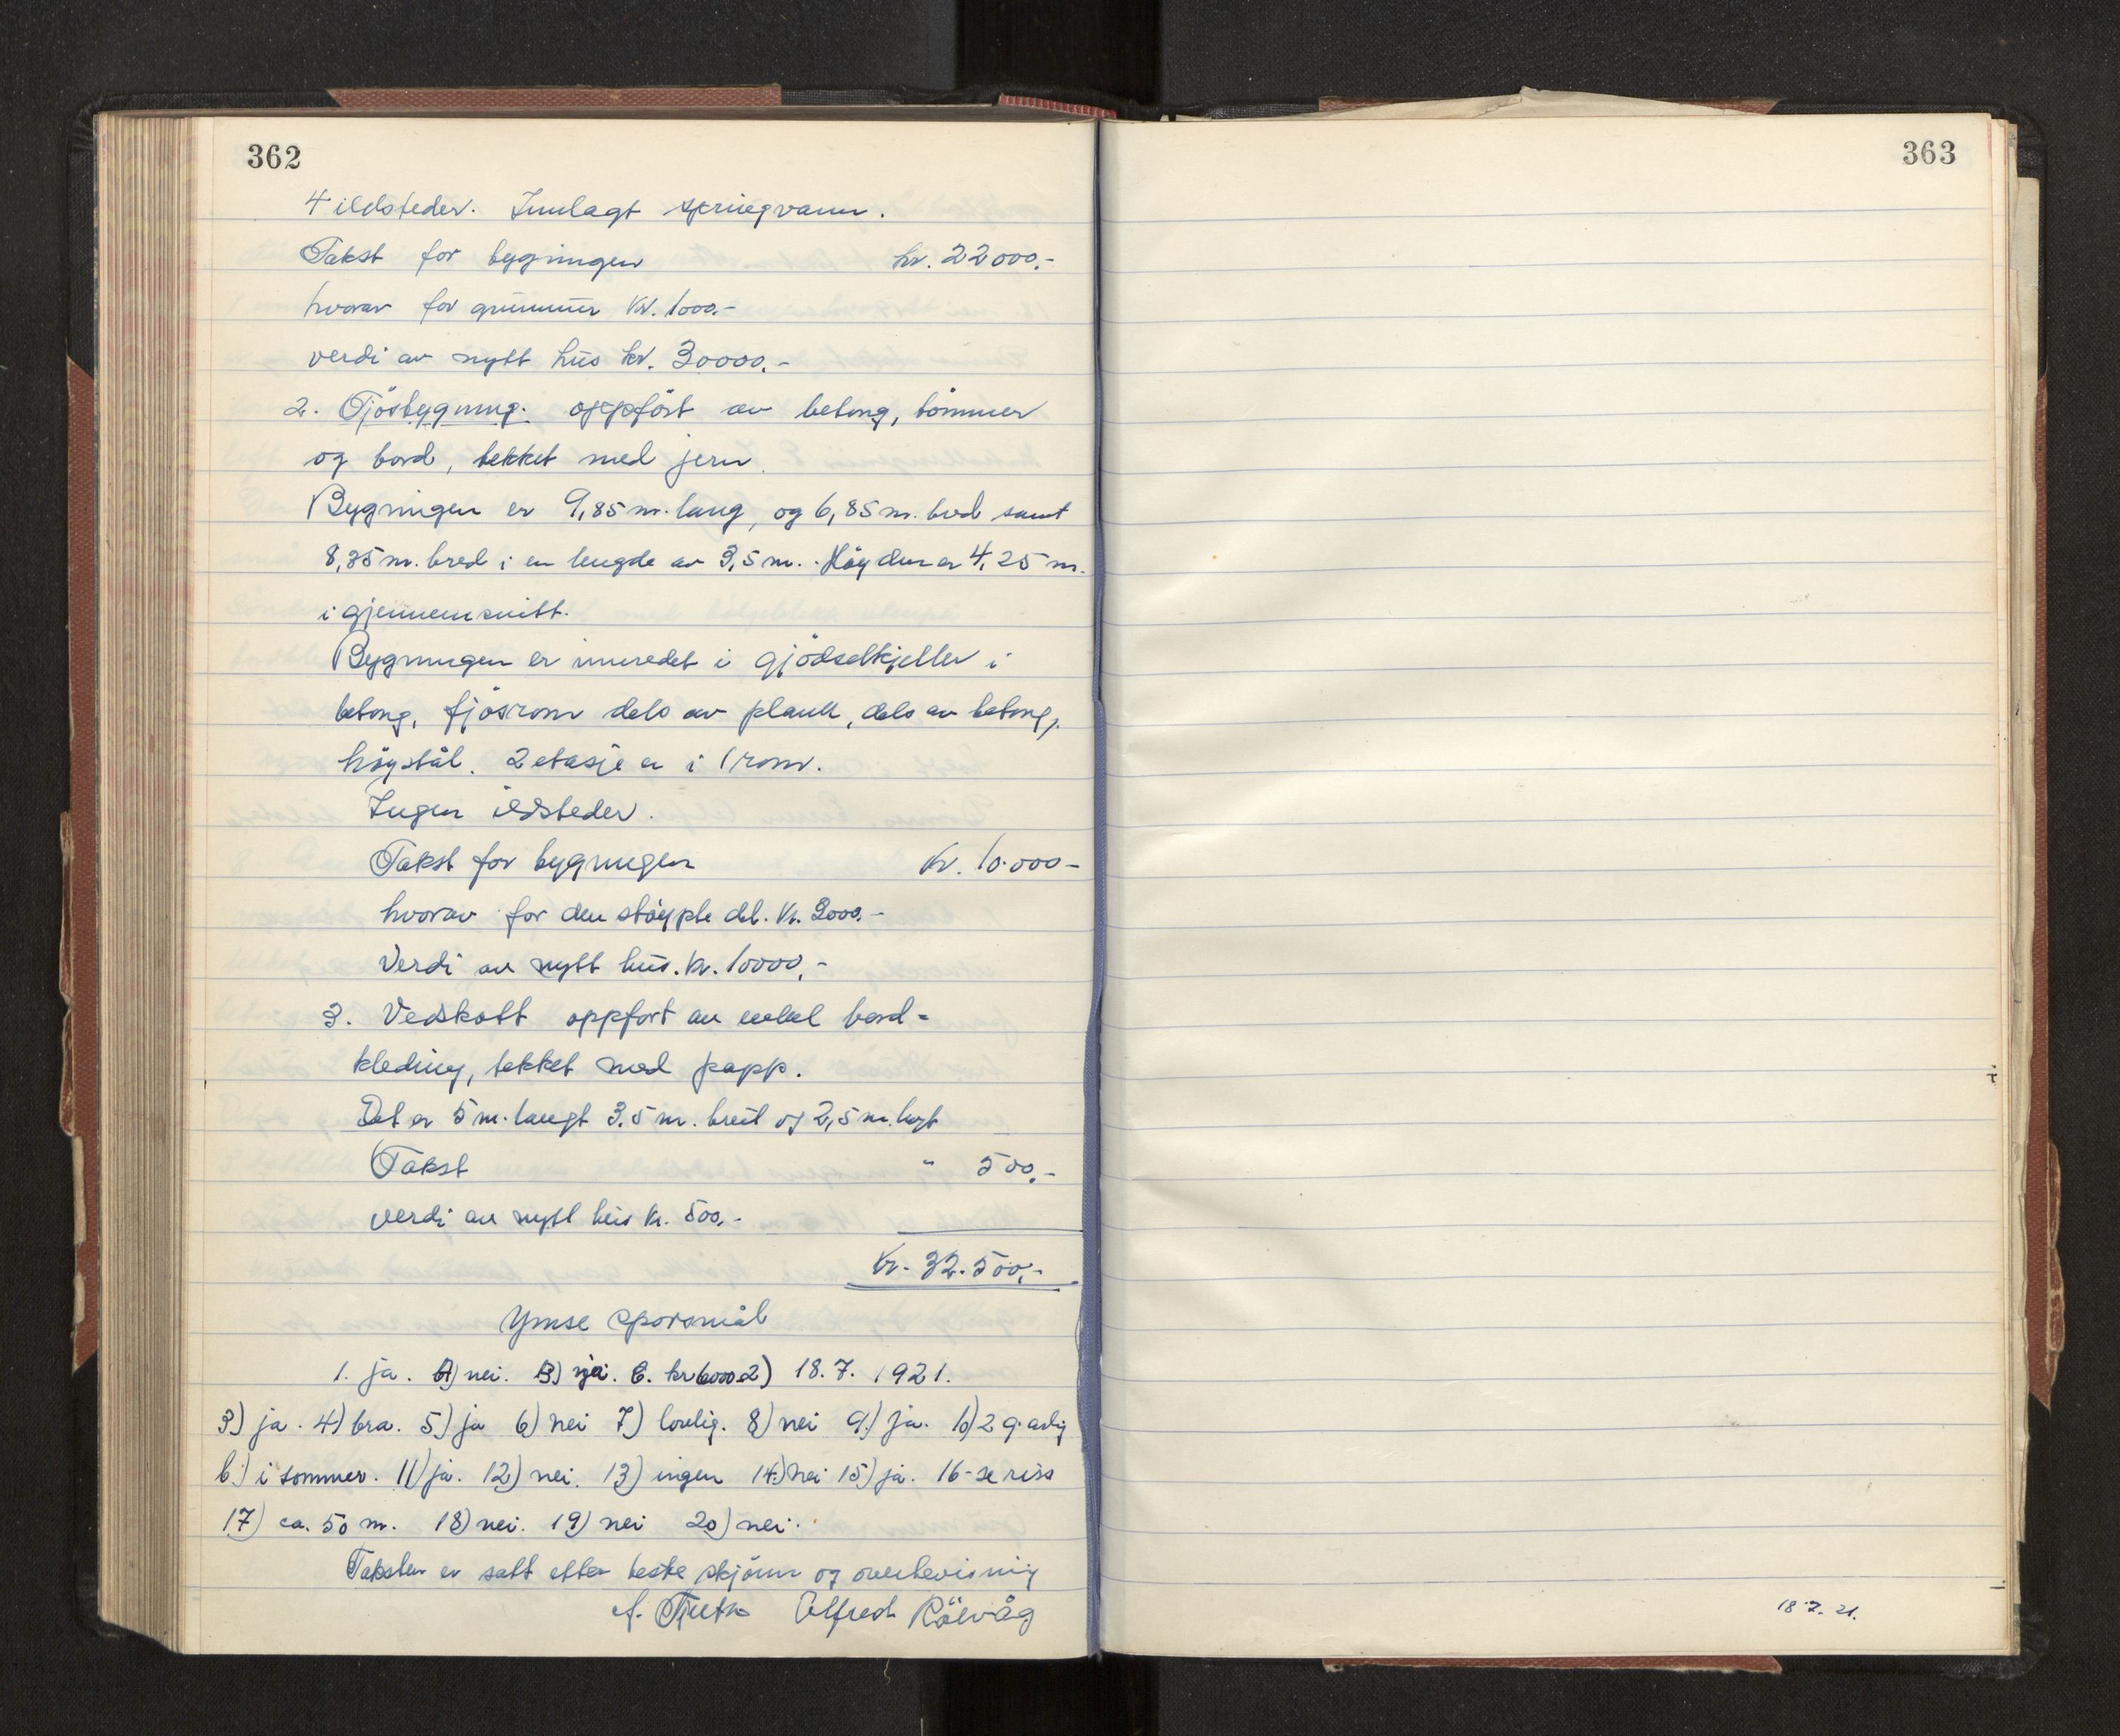 362
4 ildsteder. Innlagt springvann.
Takst for bygningen kr. 22000.-
hvorav for grunnmur Kr. 1000.-
verdi av nytt hus kr. 30000.-
2. Fjösbygning. oppfört av betong, tömmer
og bord, tekket med jern.
Bygningen er 9,85 m. lang, og 6,85 m. bred samt
8,35 m. bred i en lengde av 3,5 m. Höyden er 4,25 m.
i gjennemsnitt.
Bygningen er innredet i gjödselkjeller i
betong, fjösrom dels av plank, dels av betong,
höystål. 2 etasje er i 1 rom.
Ingen ildsteder.
Takst for bygningen Kr. 10.000-
hvorav for den stöypte del. Kr. 2000.-
Verdi av nytt hus. Kr. 10000.-
3. Vedskott oppfört av enkel bord-
kledning, tekket med papp.
Det er 5 m. langt 3,5 m. breit og 2,5 m. högt
Takst " 500.-
verdi av nytt hus Kr. 500.-
Kr. 32.500.-
Ymse sporsmål
1. ja. A) nei. B) ja. C. kr 6000 2) 18.7. 1921.
3) ja. 4) bra. 5) ja 6) nei 7) lovlig. 8) nei 9.) ja. 10) 2 g. årlig
b.) i sommer. 11) ja. 12) nei. 13) ingen 14.) nei 15) ja. 16- se riss
17) ca. 50 m. 18) nei. 19) nei 20) nei.
Taksten er satt etter beste skjönn og overbevisning
Alfred Rölvåg
363
18.7. 21.